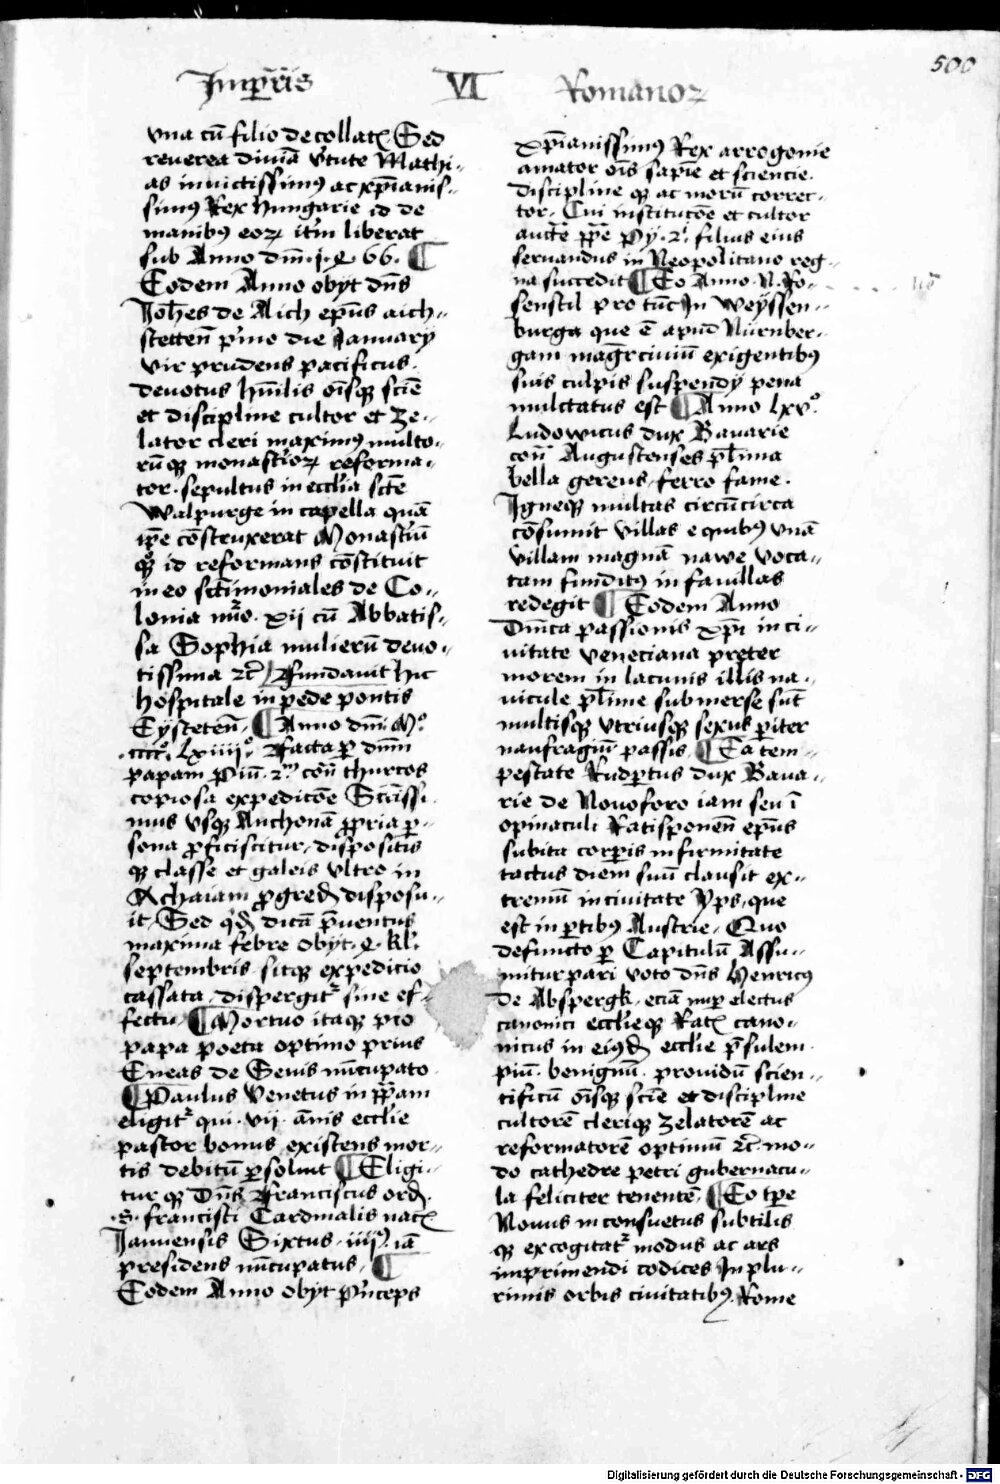 500
Imp̅ris VI Romanoꝝ
vna cū filio decollat̅ Sed
reuerea diuīa v̓tute Mathi-
as inuictissimꝰ ac xp̅ianis-
simꝰ Rex Hungarie id de
manibꝰ eoꝝ itm̅ liberat
sub Anno dm̅. 66. ¶
Eodem Anno obyt dn̅s
Joh̅es de Aich ep̅us aich-
stetten̅ p̓mo die January
vir prudens pacificus.
deuotus hu̅ilis oi̅sqꝫ scie̅
et discipline cultor et ze-
lator cleri maximꝰ multo-
rūqꝫ monast̓ioꝝ reforma-
tor. sepultus in eccl̅ia scte̅
Walpurge in capella quā
ip̅e co̅struxerat Monast̓iū
qꝫ id reformans co̅stituit
in eo sct̅imoniales de Co-
lonia nu̅o. xij cū Abbatis-
sa Sophia mulierū deuo-
tissima ꝛc̅ / Fundauit hic
hospitale in pede pontis
Eysteten̅. ¶ Anno dm̅. Mº
.ccccº. Lxiiijº. Facta ꝑ dn̅m
papam Piū. 2ᵐ con̅ thurcos
copiosa expedic̅oe Sc̅issi
mus vsqꝫ Anchonā ꝓpria ꝑ-
sona ꝓficiscitur, dispositis
qꝫ classe et galeis vltro in
Achaiam ꝓgred̅ disposu-
it. Sed dicā p̅uentus
maxima febre obyt. kl̅.
septembris. sicqꝫ expedicio
cassata, dispergitᷣ sine ef-
fectu. ¶ Mortuo itaqꝫ pio
papa poeta optimo prius
Eneas de Senis nu̅cupato
¶ Paulus Venetus in p̅pam
eligitᷣ qui. vij. a̅nis eccl̅ie
pastor bonus existens mor-
tis debitū ꝑsoluit ¶ Eligi-
tur qꝫ Dn̅s Franciscus ord̅.
.S. francisti Cardinalis nac̅
Januensis Sixtus. iiijº. iā
presidens nu̅cupatus. ¶
Eodem Anno obyt P̓nceps
xp̅ianissimꝰ Rex arrogonie
amator oi̅s sapie̅ et sciencie.
discipline qꝫ ac morū correc-
tor. Cui institutō̅e et cultor
aucte̅ filius eius
fernandus in Neopolitano reg-
na succedit ¶ Eo Anno. N. Ro-
senstil pro tu̅c In Weyssen-
burga que e̅ apud Nürnber-
gam mag̅r ciuiū exigentibꝰ
suis culpis suspendy pena
mulctatus est ¶ Anno Lxvº.
Ludowicus dux Bauarie
con̅ Augustenses pl̅ima
bella gerens, ferro fame.
Igneqꝫ multas circūcirca
co̅sumit villas e quibꝰ vnā
villam magnā nawe voca-
tam funditꝰ in fauillas
redegit ¶ Eodem Anno
Dn̅ica passionis xp̅i in ci-
uitate veneciana preter
morem in lacunis illis na-
uicule pl̅ime submerse sūt
multisqꝫ vtriusqꝫ sexus ꝑiter
naufragiū passis. ¶ Ea tem-
pestate Ruꝑtus dux Baua-
rie de Nouoforo iam seu ī
opinaculi Ratisponen̅ ep̅us
subita corꝑis infirmitate
tactus diem suū clausit ex-
tremū in ciuitate Yps, que
est in ꝑtibꝰ Austrie. Quo
defuncto ꝑ Capitulū Assu-
mitur pari voto dn̅s Henricꝰ
de Abspergk. eciā nuꝑ electus
canonici eccl̅ieqꝫ Rat̅ cano-
nicus in eiꝰd̅ eccl̅ie p̅sulem
piū. benignū. prouidū scien-
tificū oi̅sqꝫ scie̅ et discipline
cultorē cleriqꝫ zelatorē ac
reformatorē optimū ꝛc̅. mo-
do cathedre petri gubernacu-
la feliciter tenentē. ¶ Eo tp̅e
Nouus inconsuetus subtilis
qꝫ excogitatᷣ modus ac ars
imprimendi codices In plu-
rimis orbis ciuitatibꝰ. Rome
Digitalisierung gefördert durch die Deutsche Forschungsgemeinschaft - DFG